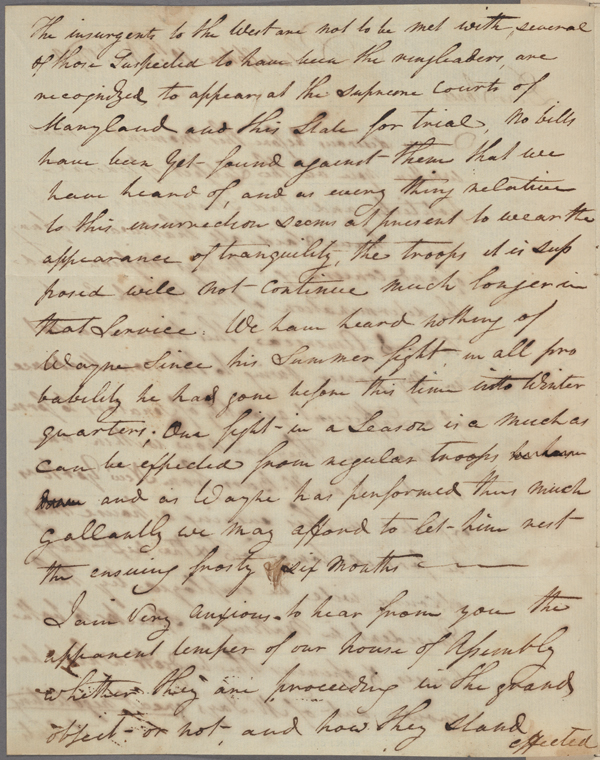 The insurgents to the West are not to be met with, several
of those Suspected to have been the ringleaders, are
recognized to appear at the supreme courts of
Maryland and this State for trial, No bills
have been yet found against them that we
have heard of, and as every thing relative
to this insurrection seems at present to wear the
appearance of tranquility, the troops it is sup
posed will not continue much longer in
that Service. We have heard nothing of
Wayne Since his Summer fight, in all pro
bability he had gone before this time into Winter
quarters; One fight in a Season is a much as
can be effected from regular troops
and as Wayne has performed thus much
gallantly we may afford to let him rest
the ensuing frosty six months
I am very anxious to hear from you the
apparent temper of our house of Assembly
whither they are proceeding in the grand
object or not, and how they stand
effected